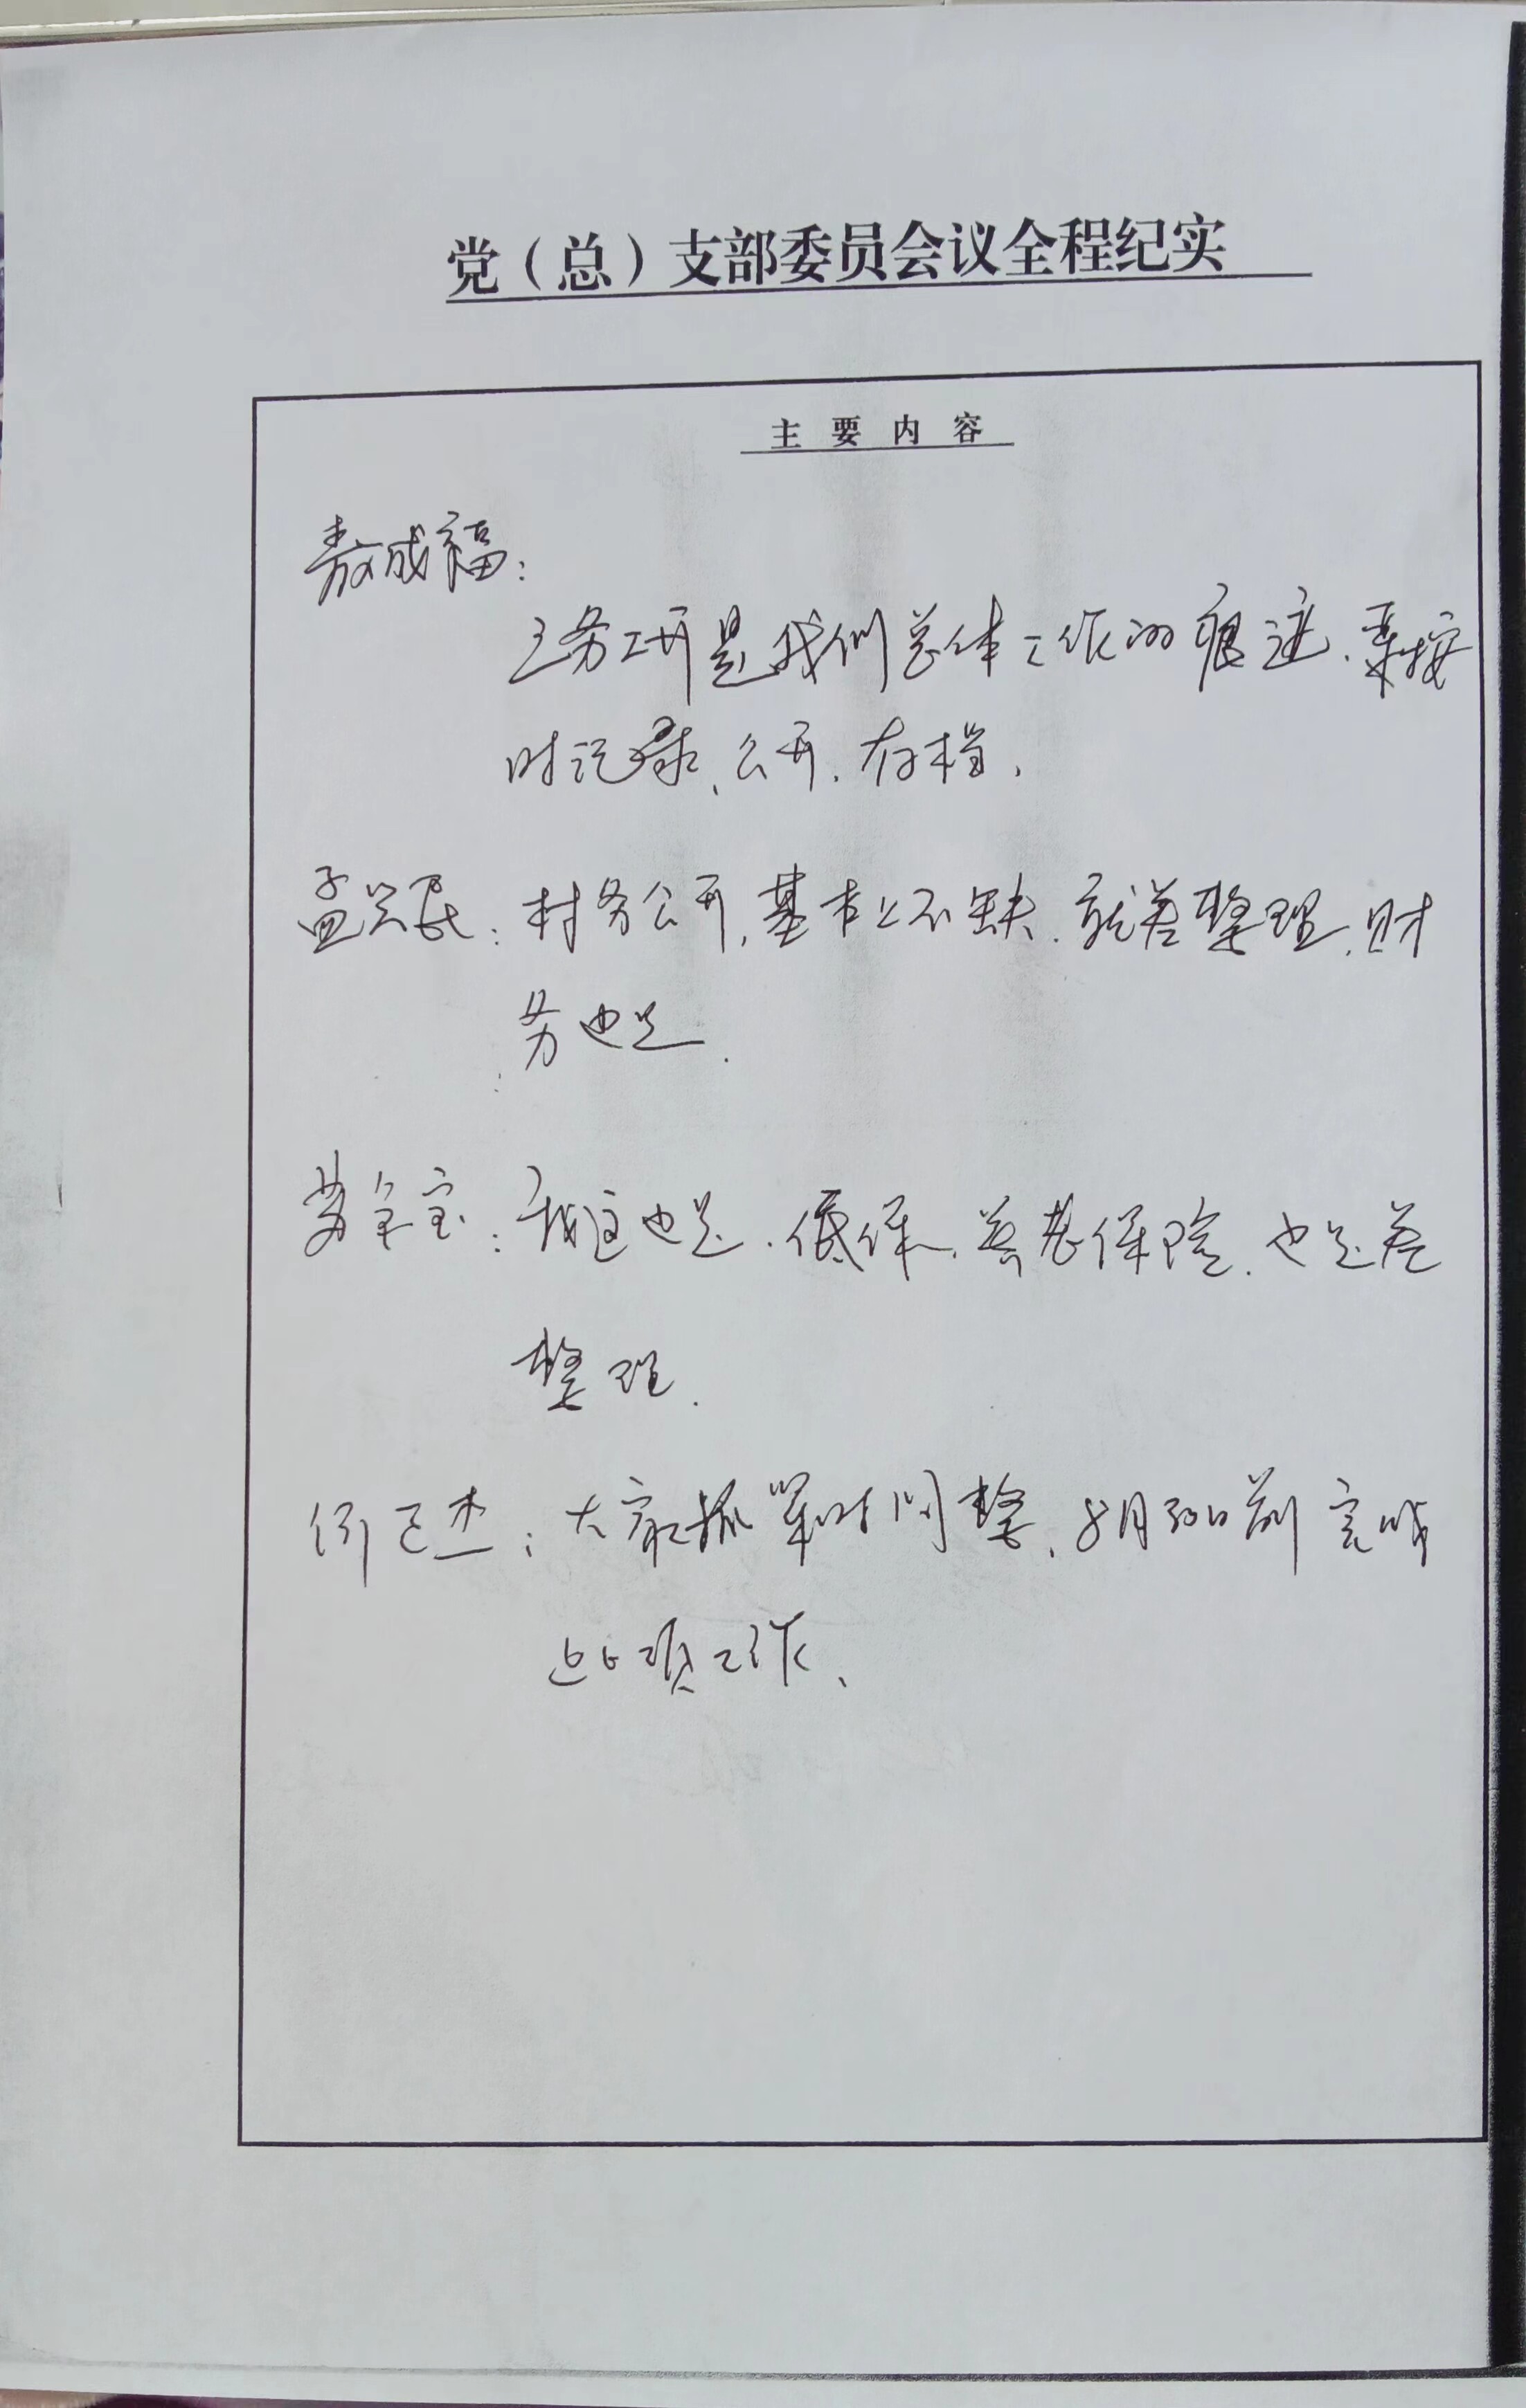 党（总）支部委员会议全程纪实
主要内容
敖成福：
三务公开是我们总体工作的痕迹、要按
时记录、公开、存档、
孟兴民：村务公开，基本上不缺、就差整理、财
务也是.
宝宝：我这也是、低保、养老保险、也是差
整理.
何正杰：大家抓紧时间整、8月30日前完成
此项工作、